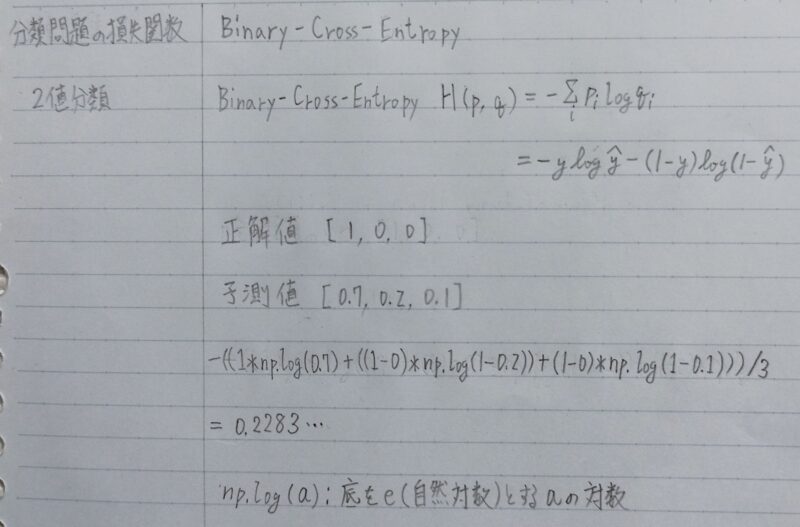 分類問題の損失関数 Binary-Cross-Entropy
2値分類 Binary-Cross-Entropy H(p, q) = -Σ_i p_i log q_i
= -y log ŷ - (1-y) log(1-ŷ)
正解値 [1, 0, 0]
予測値 [0.7, 0.2, 0.1]
-((1*np.log(0.7)+((1-0)*np.log(1-0.2))+(1-0)*np.log(1-0.1)))/3
= 0.2283…
np.log(a): 底をe(自然対数)とするaの対数